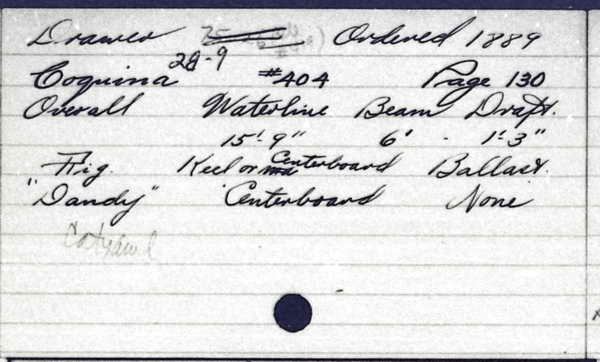 Drawer Ordered 1889
28-9
Coquina #404 Page 130
Overall Waterline Beam Draft.
15'-9" 6' - 1'-3"
Rig. Keel or Centerboard Ballast.
"Dandy" Centerboard None
Catyawl